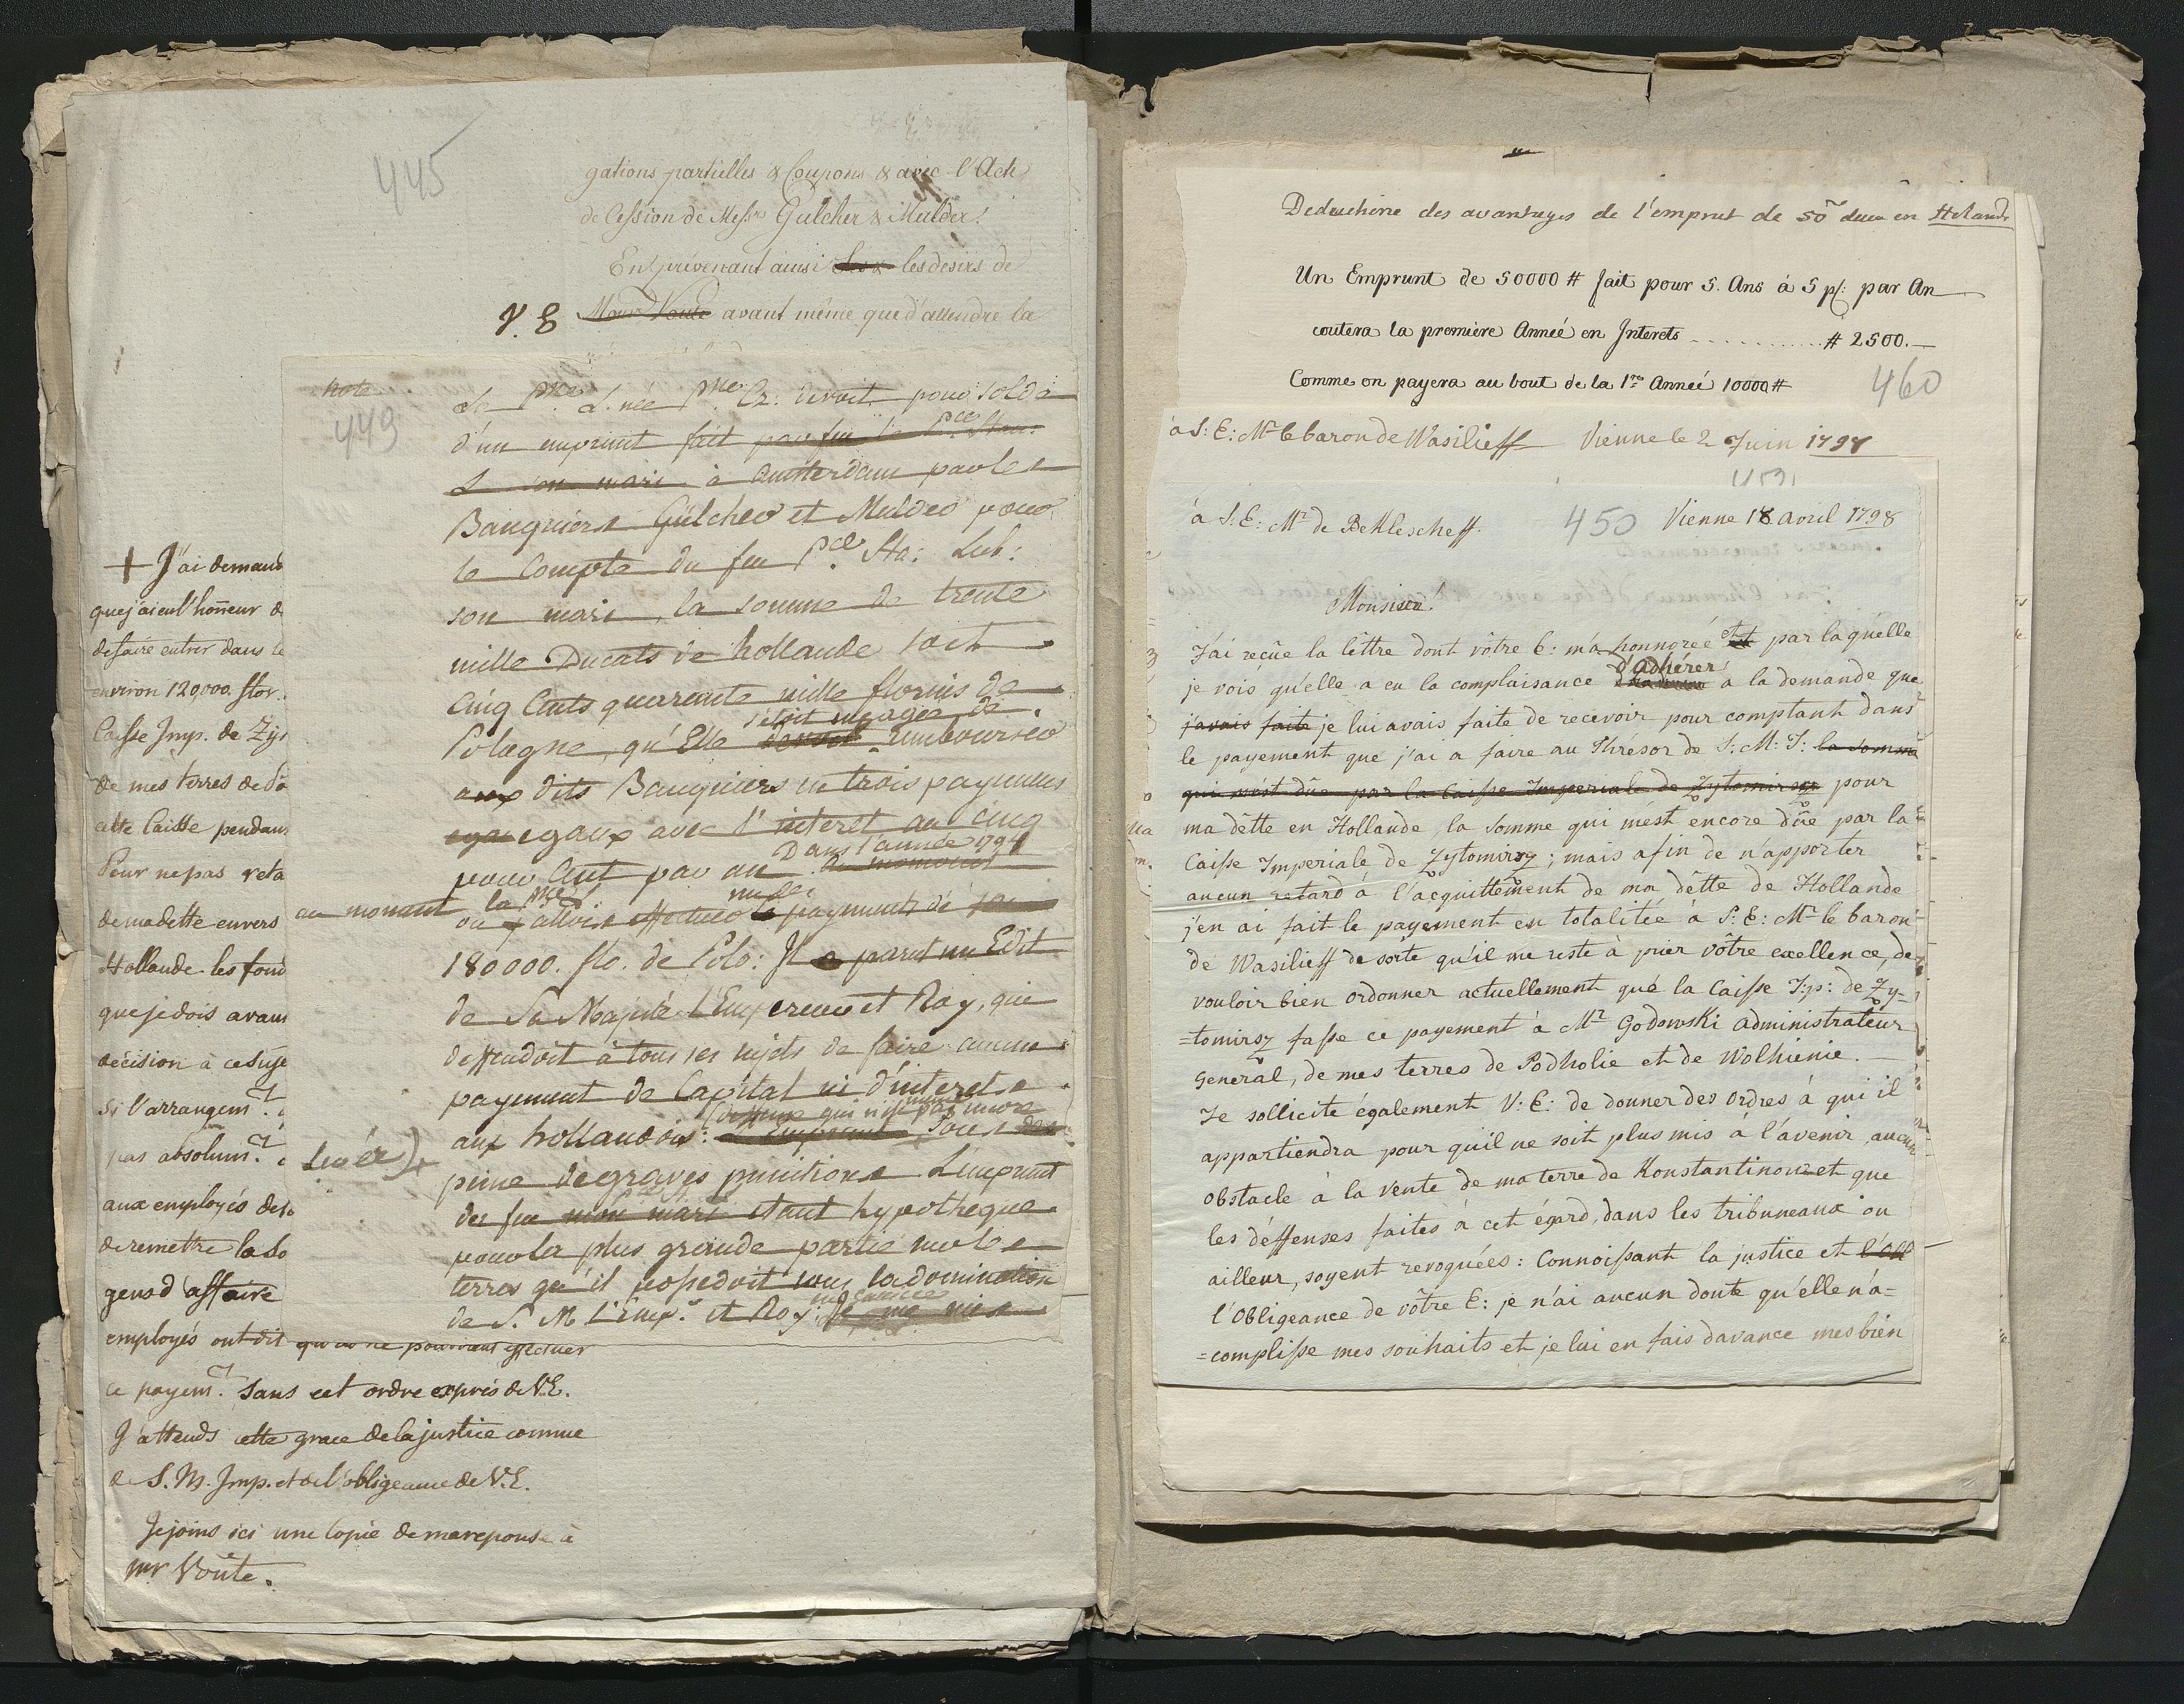 445
gations partielles & Coupons & avec l'Acte
de Cession de Messrs Gulcher & Mulder.
En prévenant ainsi les desirs de
V. E. Monsr Voute avant même que d'attendre la
+ J'ai demand
que j'ai eu l'honneur d
de faire entrer dans le
environ 120,000 flor.
Caisse Imp. de Zyt
de mes terres de
cette Caisse pendan
Pour ne pas reta
de ma dette envers
Hollande les fond
que je dois avan
décision à ce suje
Si l'arrangemt.
pas absolumt.
aux employés de
de remettre la So
gens d'affaire
employés ont dit qu'on ne pourrait effectuer
ce payemt. sans cet ordre exprès de V.E.
J'attends cette grace de la justice connue
de S. M. Imp. et de l'obligeance de V.E.
Je joins ici une copie de ma reponse à
mr Voûte.
Note
449
La Pce L. née Pce Cz: devoit pour solde
d'un emprunt fait par feu le Pce Stan:
L son mari à Amsterdam par les
Banquiers Gülcher et Mulder pour
le Compte du feu Pce Sta: Lub:
son mari, la somme de trente
mille Ducats de hollande soit
Cinq Cents quarante mille florins de
s'étoit engagée de
Pologne, qu'Elle devoit rembourser
aux dits Banquiers en trois payemens
egaux avec l'interet au Cinq
Dans l'année 1794
pour Cent par an au moment
au moment la Pce L
où j'allois effectuer le payement de
180000. flo. de Polo: Il a parut un Edit
de Sa Majesté l'Empereur et Roy, qui
deffendoit à tous ses sujets de faire aucun
payement de Capital ni d'interets
(deffense qui n'est pas encore
aux hollandois: L'Emprunt sous
levée)+
peine de graves punitions L'emprunt
de feu mon mari étant hypotheque
pour la plus grande partie sur les
terres qu'il possedoit sous la domination
de S. M. l'Emp.r et Roy: je me suis
Deduchine des avantages de l'emprut de 50m duca en Holande
Un Emprunt de 50000 # fait pour 5. Ans à 5 p: par An
coutera la premiere Anneé en Interets ........... # 2500.—
Comme on payera au bout de la 1re Anneé 10000 #
460
à S: E: Mr le baron de Wasilieff Vienne le 2 Juin 1798
459
à S: E: Mr de Bekleschieff. 450 Vienne 18 avril 1798
Monsieur!
J'ai reçûe la lêttre dont vôtre E: m'a honnoreé et par laquelle
d'adhérer
je vois qu'elle a eu la complaisance à la demande que
javais faite je lui avais faite de recevoir pour comptant dans
le payement que j'ai a faire au Thrésor de S: M: I: la somme
qui m'est dûe par la Caisse Imperiale de Zytomirsz pour
ma dêtte en Hollande, la somme qui m'est encore dûe par la
Caisse Imperiale de Zytomirsz; mais afin de n'apporter
aucun retard à l'acquittement de ma dêtte de Hollande
j'en ai fait le payement en totalitée à S: E: Mr le baron
de Wasilieff de sorte qu'il me reste à prier vôtre excellence, de
vouloir bien ordonner actuellement que la Caisse Imp: de Zy-
=tomirsz fasse ce payement à Mr Godowski administrateur
General, de mes terres de Podholie et de Wolhienie. —
Je sollicite également V: E: de donner des ordres à qui il
appartiendra pour qu'il ne soit plus mis à l'avenir, aucun
obstacle à la vente de ma terre de Konstantinow et que
les déffenses faites à cet égard, dans les tribuneaux ou
ailleur, soyent revoquées: Connoissant la justice et l'Obl
l'obligeance de vôtre E: je n'ai aucun doute qu'elle n'a-
=complisse mes souhaits et je lui en fais d'avance mes bien